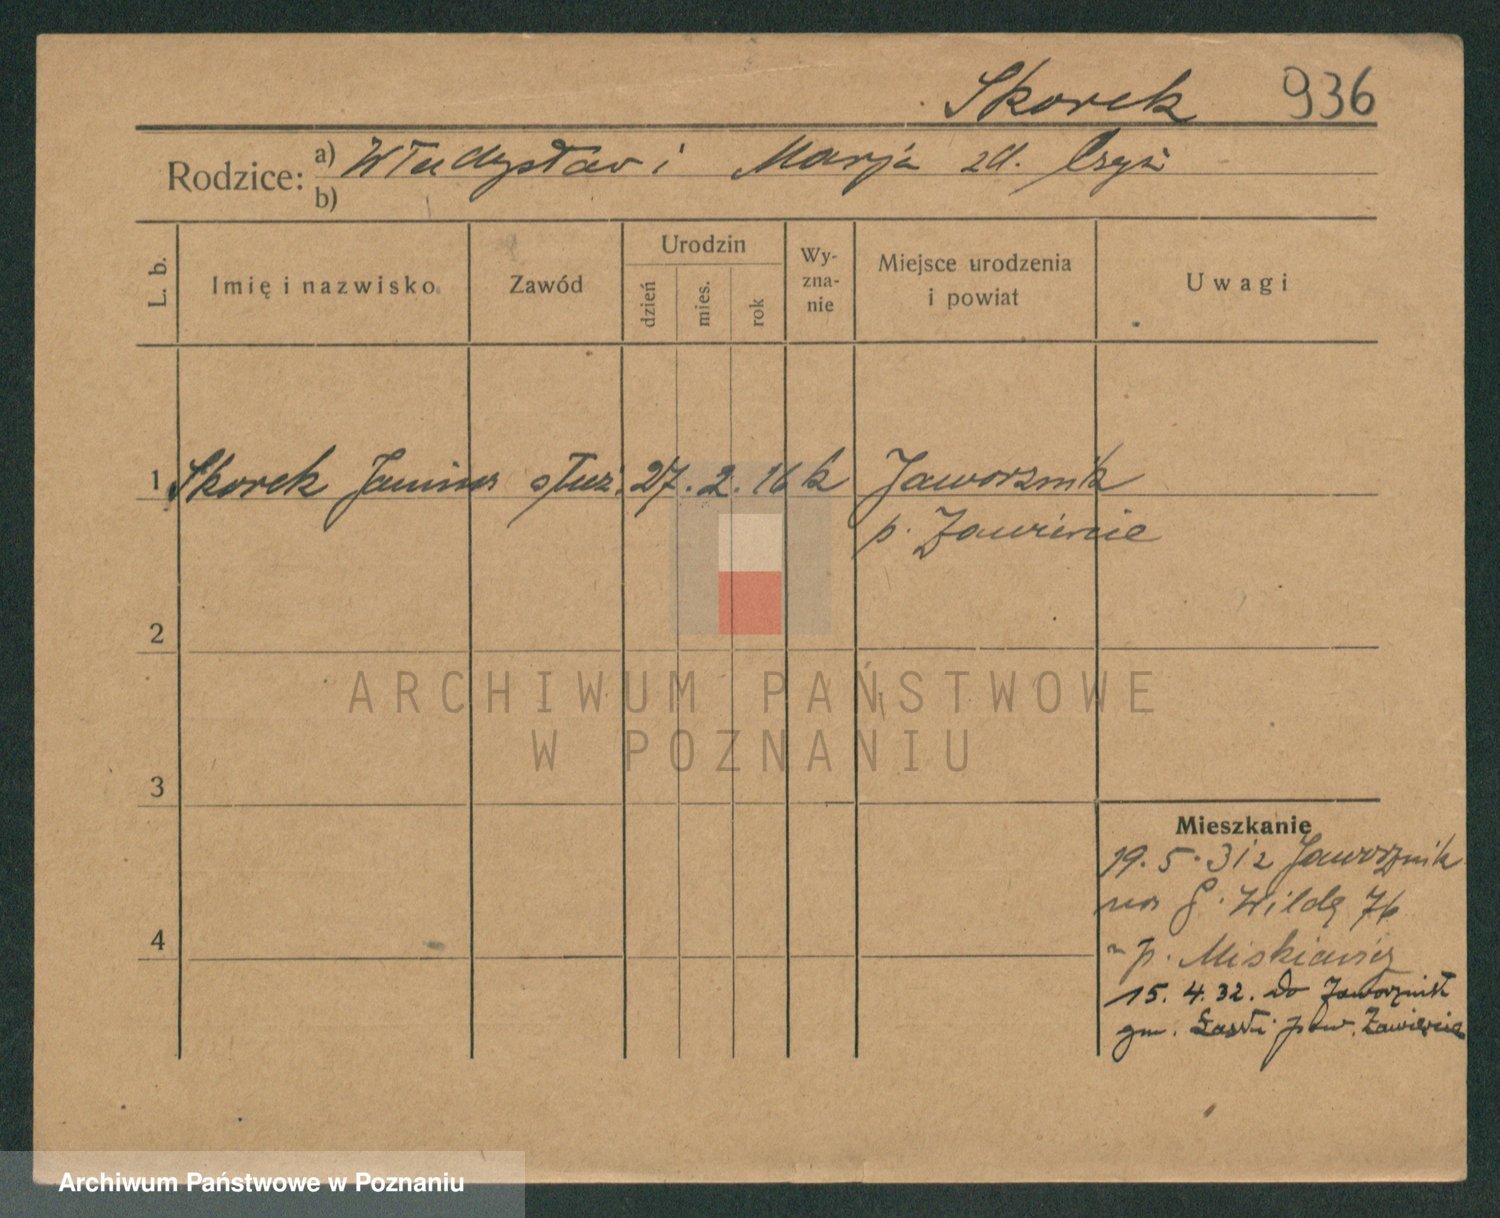 Skorek 936
Rodzice: a) Władysław i Marja zd. Czyż
b)
L. b.
Imię i nazwisko
Zawód
Urodzin
dzień
mies.
rok
Wy-
zna-
nie
Miejsce urodzenia
i powiat
Uwagi
1 Skorek Janina służ. 27. 2. 16 k Jaworznik
p. Zawiercie
2
ARCHIWUM PAŃSTWOWE
W POZNANIU
3
Mieszkanie
19. 5. 31 z Jaworznik
na G. Wildę 76
p. Miskiewicz
4
15. 4. 32. do Jaworznik
gm. pow. Zawiercie
Archiwum Państwowe w Poznaniu